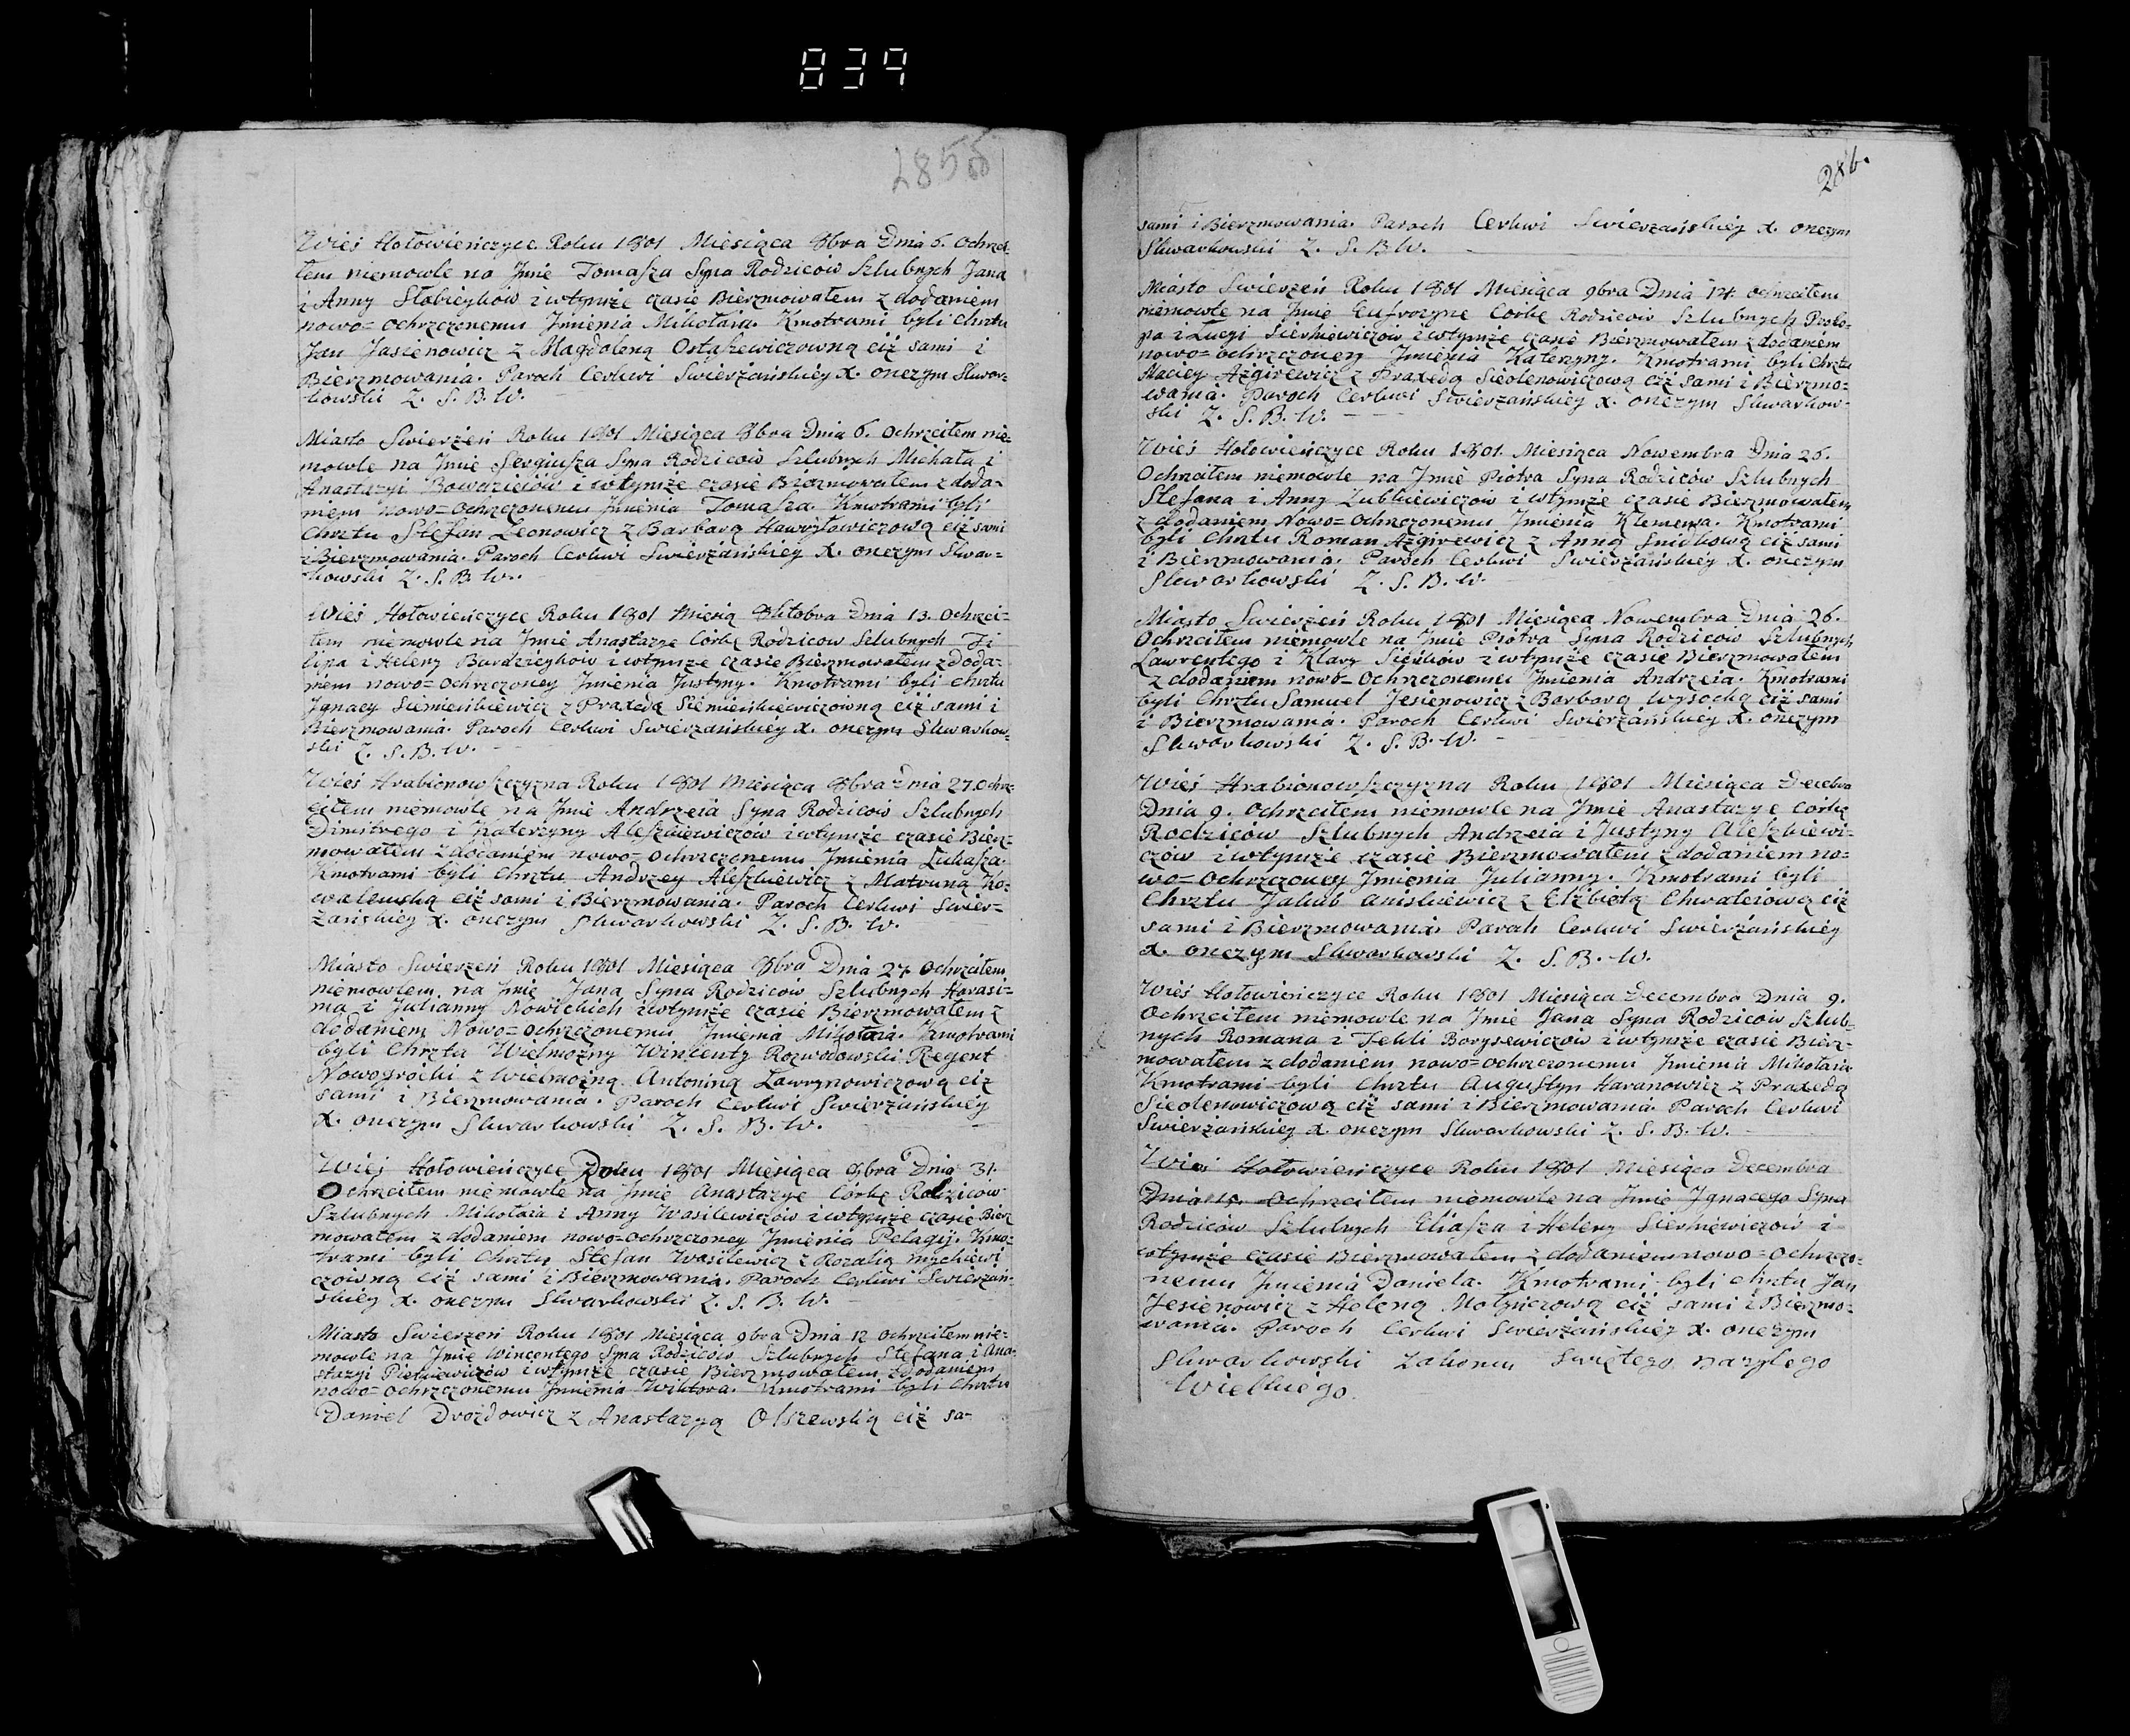 839
285
Wieś Hołowieńczyce Roku 1801 Miesiąca 8bra Dnia 6. Ochrzci-
łem niemowle na Jmie Tomasza Syna Rodziców Szlubnych Jana
i Anny Słabieyków i wtymże czasie Bierzmowałem z dodaniem
nowo=ochrzczonemu Jmienia Mikołaia. Kmotrami byli chrztu
Jan Jasienowicz z Magdaleną Ostaszewiczowną ciż sami i
Bierzmowania. Paroch Cerkwi Swierżańskiey X. onezym Skwar=
kowski Z. S. B. W.
Miasto Swierżeń Roku 1801 Miesiąca 8bra Dnia 6. Ochrzciłem nie=
mowle na Jmie Sergiusza Syna Rodziców Szlubnych Michała i
Anastazyi i wtymże czasie Bierzmowałem z doda=
niem Nowo=ochrzczonemu Jmienia Tomasza. Kmotrami byli
Chrztu Stefan Leonowicz z Barbarą Hawryławiczową ciż sami
i Bierzmowania. Paroch Cerkwi Swierżańskiey X. onezym Skwar=
kowski Z. S. B. W.
Wieś Hołowieńczyce Roku 1801 Miesią 8ktobra Dnia 13. Ochrzci=
łem niemowle na Jmie Anastazye Córkę Rodzicow Szlubnych Fi
lipa i Heleny Bardzieyków i wtymże czasie Bierzmowałem z doda=
niem nowo=ochrzczoney Jmienia Justyny. Kmotrami byli chrztu
Jgnacy Siemieńkiewicz z Praxedą Siemieńkiewiczowną ciż sami i
Bierzmowania. Paroch Cerkwi Swierżańskiey X. onezym Skwarkow=
ski Z. S. B. W.
Wieś Hrabionowszczyzna Roku 1801 Miesiąca 8bra Dnia 27. Ochrz=
ciłem niemowle na Jmie Andrzeia Syna Rodziców Szlubnych
Dmitrego i Katerzyny Aleszkiewiczów i wtymże czasie Bierz=
mowałem z dodaniem nowo=ochrzczonemu Jmienia Łukasza.
Kmotrami byli chrztu Andrzey Aleszkiewicz z Matruną Ko=
walewską ciż sami i Bierzmowania. Paroch Cerkwi Swier=
żańskiey X. onezym Skwarkowski Z. S. B. W.
Miasto Swierżeń Roku 1801 Miesiąca 8bra Dnia 27 Ochrzciłem
niemowlem na Jmie Jana Syna Rodzicow Szlubnych Harasi=
ma i Julianny Nowickich i wtymże czasie Bierzmowałem z
dodaniem Nowo=ochrzczonemu Jmienia Mikołaia. Kmotrami
byli Chrztu Wielmożny Wincenty Rozwadowski Regent
Nowogrócki z Wielmożną Antoniną Ławrynowiczową ciż
sami i Bierzmowania. Paroch Cerkwi Swierżańskiey
X. onezym Skwarkowski Z. S. B. W.
Wieś Hołowieńczyce Roku 1801 Miesiąca 8bra Dnia 31.
Ochrzciłem niemowle na Jmie Anastazye Córkę Rodziców
Szlubnych Mikołaia i Anny Wasilewiczów i wtymże czasie Bierz
mowałem z dodaniem nowo=ochrzczoney Jmienia Pelagij. Kmo=
trami byli Chrztu Stefan Wasilewicz z Rozalią Mychiewi
czowną ciż sami i Bierzmowania. Paroch Cerkwi Swierżań=
skiey X. onezym Skwarkowski Z. S. B. W.
Miasto Swierżeń Roku 1801 Miesiąca 9bra Dnia 12 Ochrzciłem nie=
mowle na Jmie Wincentego Syna Rodziców Szlubnych Stefana i Ana=
stazyi Pietkiewiczów i wtymże czasie Bierzmowałem z dodaniem
nowo=ochrzczonemu Jmienia Wiktora. Kmotrami byli Chrztu
Daniel Drozdowicz z Anastazyą Olszewską ciż sa-
286.
sami i Bierzmowania. Paroch Cerkwi Swierżańskiey X. onezym
Skwarkowski Z. S. B. W.
Miasto Swierżeń Roku 1801 Miesiąca 9bra Dnia 14. Ochrzciłem
niemowle na Jmie Eufrozyne Córkę Rodziców Szlubnych Proko=
pa i Łucyi Sierkiewiczów i wtymże czasie Bierzmowałem z dodaniem
nowo=ochrzczoney Jmienia Katerzyny. Kmotrami byli Chrztu
Maciey Ażgirewicz z Praxedą Siedlenowiczową ciż sami i Bierzmo=
wania. Paroch Cerkwi Swierżańskiey X. onezym Skwarkow=
ski Z. S. B. W.
Wieś Hołowieńczyce Roku 1801 Miesiąca Nowembra Dnia 26.
Ochrzciłem niemowle na Jmie Piotra Syna Rodziców Szlubnych
Stefana i Anny Zubkiewiczów i wtymże czasie Bierzmowałem
z dodaniem Nowo=ochrzczonemu Jmienia Klemensa. Kmotrami
byli Chrztu Roman Ażgirewicz z Anną Snidkową ciż sami
i Bierzmowania. Paroch Cerkwi Swierżańskiey X. onezym
Skwarkowski Z. S. B. W.
Miasto Swierżeń Roku 1801 Miesiąca Nowembra Dnia 26.
Ochrzciłem niemowle na Jmie Piotra Syna Rodziców Szlubnych
Lawrentego i Klary Sieńków i wtymże czasie Bierzmowałem
z dodaniem nowo=ochrzczonemu Jmienia Andrzeia. Kmotrami
byli Chrztu Samuel Jesienowicz z Barbarą Wysocką ciż sami
i Bierzmowania. Paroch Cerkwi Swierżańskiey X. onezym
Skwarkowski Z. S. B. W.
Wieś Hrabionowszczyzna Roku 1801 Miesiąca Decebra
Dnia 9. Ochrzciłem niemowle na Jmie Anastazye Córkę
Rodziców Szlubnych Andrzeia i Justyny Aleszkiewi=
czów i wtymże czasie Bierzmowałem z dodaniem no=
wo=ochrzczoney Jmienia Julianny. Kmotrami byli
Chrztu Jakub Aniśkiewicz z Elżbietą Chwaterową ciż
sami i Bierzmowania. Paroch Cerkwi Swierżańskiey
X. onezym Skwarkowski Z. S. B. W.
Wieś Hołowieńczyce Roku 1801 Miesiąca Decembra Dnia 9.
Ochrzciłem niemowle na Jmie Jana Syna Rodziców Szlub=
nych Romana i Tekli Borysewiczów i wtymże czasie Bierz=
mowałem z dodaniem nowo=ochrzczonemu Jmienia Mikołaia
Kmotrami byli Chrztu Augustyn Haranowicz z Praxedą
Siedlenowiczową ciż sami i Bierzmowania. Paroch Cerkwi
Swierżańskiey X. onezym Skwarkowski Z. S. B. W.
Wieś Hołowieńczyce Roku 1801 Miesiąca Decembra
Dnia Ochrzciłem niemowle na Jmie Jgnacego Syna
Rodziców Szlubnych Eliasza i Heleny Sierkiewiczów i
wtymże czasie Bierzmowałem z dodaniem nowo=ochrzczo=
nemu Jmienia Daniela. Kmotrami byli chrztu Jan
Jesienowicz z Heleną Mołyniczową ciż sami i Bierzmo=
wania. Paroch Cerkwi Swierżańskiey X. onezym
Skwarkowski Zakonu Swiętego Bazylego
Wielkiego.